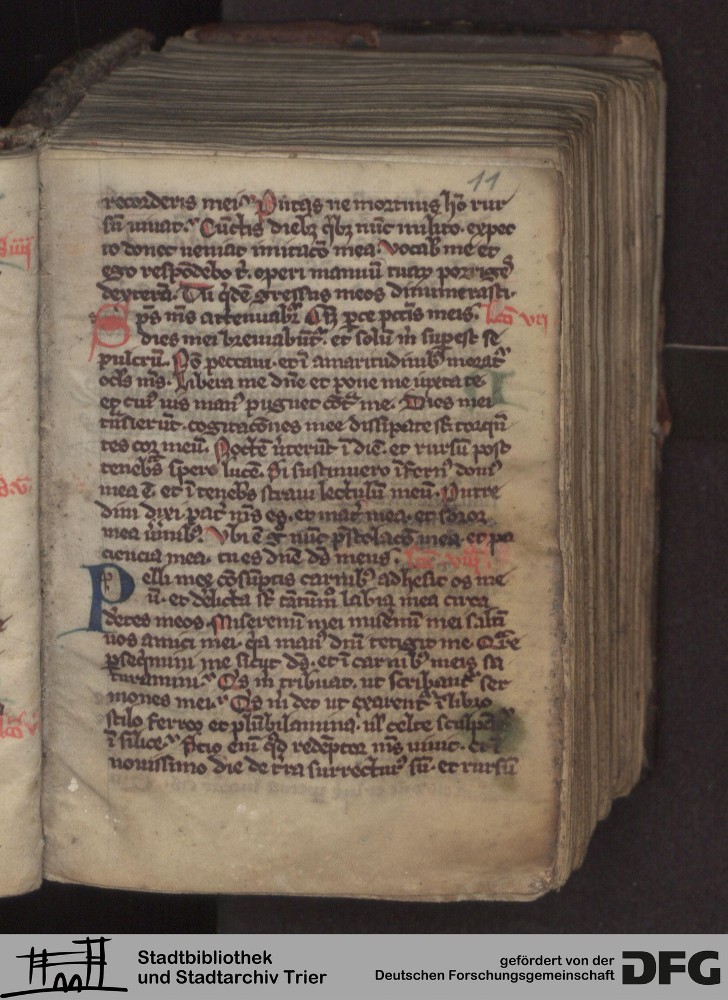 11
recorderis mei Putas ne mortuus hō rur
sū viuat. Cūctis dieb; qb; nūc milito. expec
to donec veniat imitacō mea. vocab me et
ego respōdebo t. operi manuū tuaꝝ porrige
dexterā. Tu qdē gressus meos dinumerasti.
Sps ms attenuabr Lcō vii
dies mei breuiabūt. et solū m supest se
pulcrū. Nō peccaui. et ī amaritudinib morat
ocls ms. Libera me dñe et pone me iuxta te
et cui us man pugnet cōt me. Dies mei
tnsierūt. cogitacōnes mee dissipate st torqū
tes cor meū. Noctē vterūt ī diē. et rursū post
tenebs spero lucē. Si sustinuero īfern dom
mea ē. et ī tenebs straui lectulū meū. Putre
dini dixi pat ms es. et mat mea. et soror
mea vmib. Vbi ē g nūc pstolacō mea. et pa
ciencia mea. tu es dñe ds meus.
Pelli mee cōsūptis carnib adhesit os me
ū. et delicta st tātūm labia mea circa
dētes meos. Miseremi mei miseremi mei saltī
vos amici mei. qa man dñi tetigit me. Qre
psequimini me sicut ds. et ī carnib meis sa
turamini. Qs m tribuat. ut scribant ser
mones mei. Qs m det ut exarent ī libro
stilo ferreo et plūbi lamina. ul celte sculpant
ī silice. Scio enī qd redēptor ms viuit. et ī
nouissimo die de tra surrectur sū. et rursū
Stadtbibliothek
und Stadtarchiv Trier
gefördert von der
Deutschen Forschungsgemeinschaft
DFG